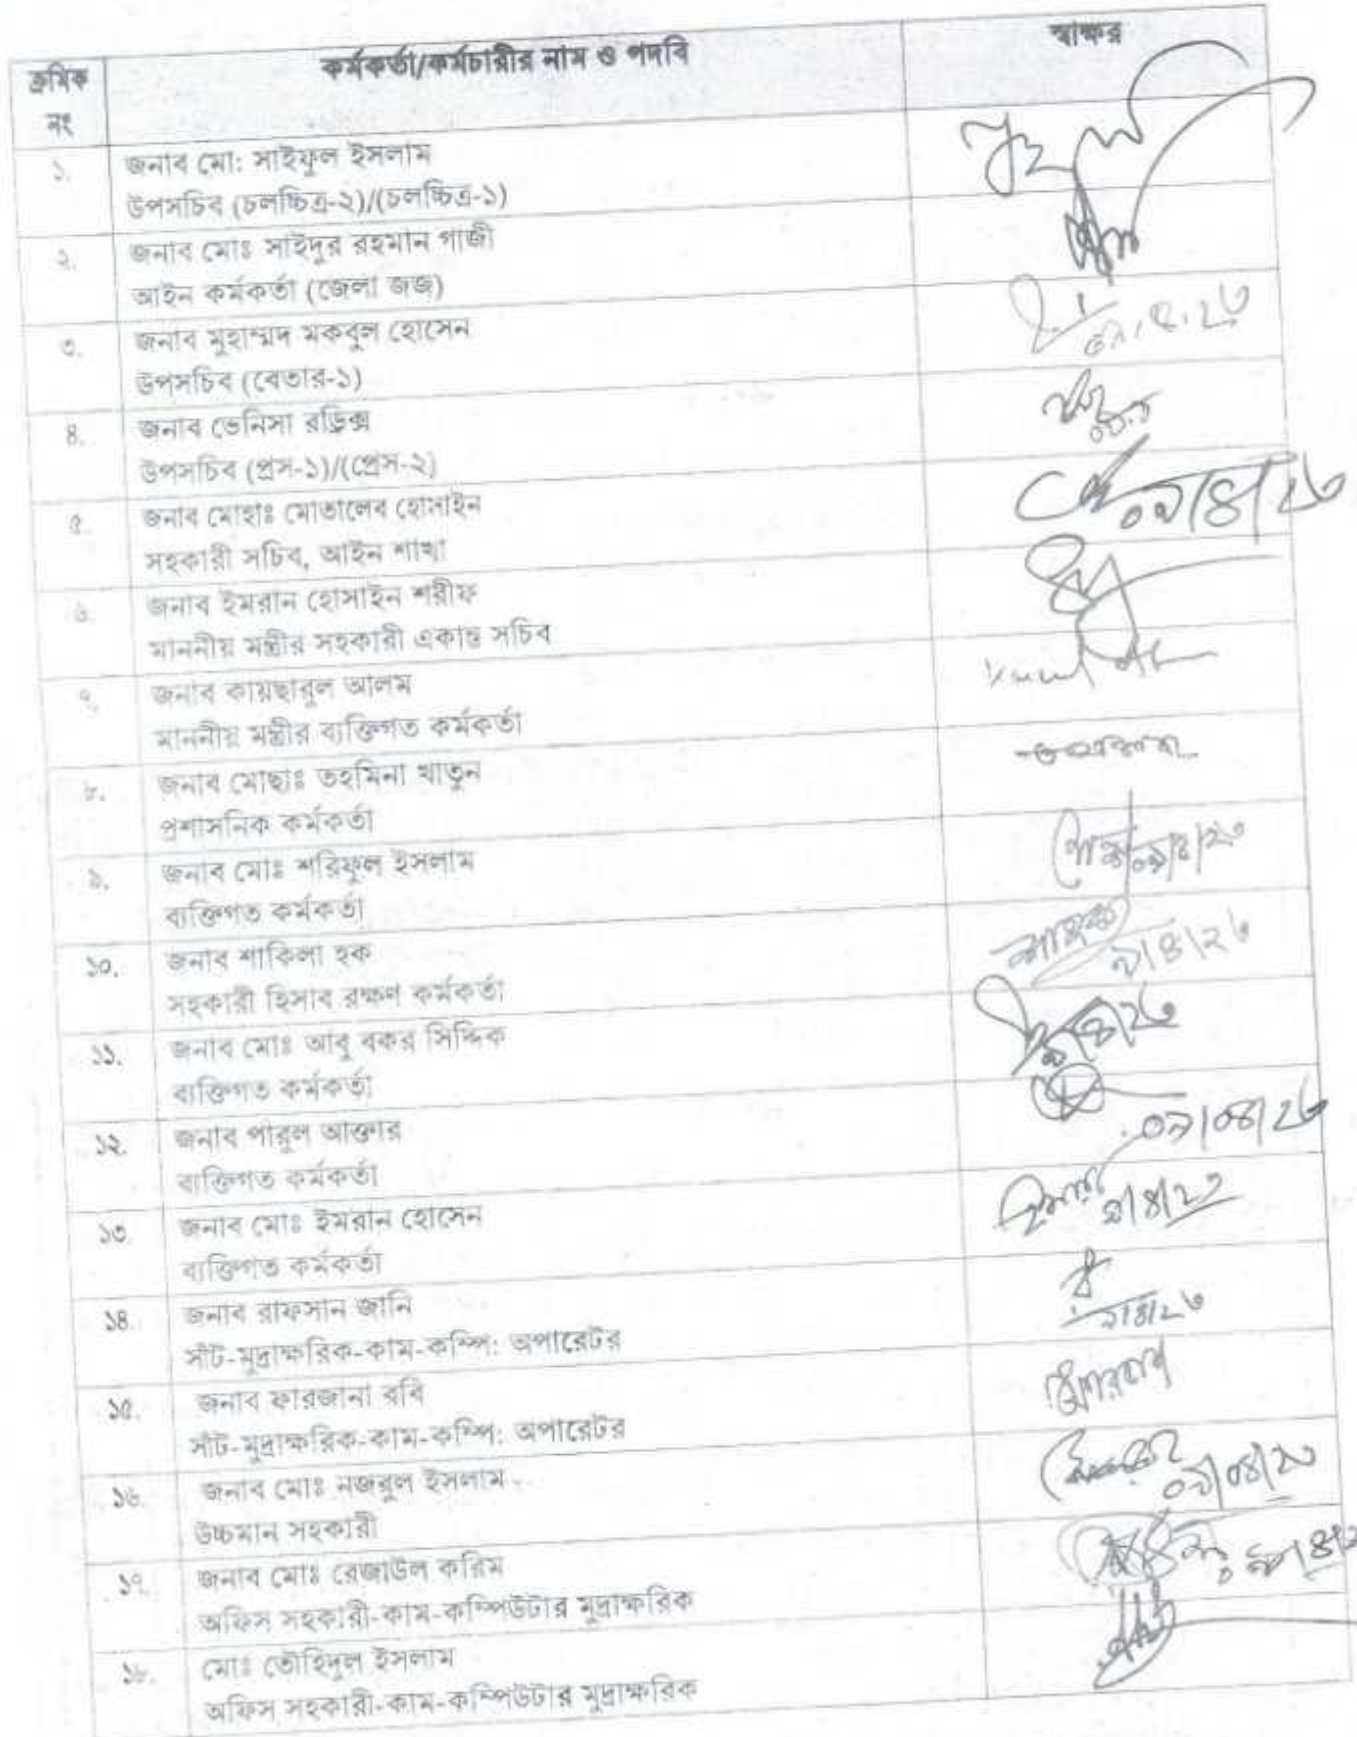 ক্রমিক নং কর্মকর্তা/কর্মচারীর নাম ও পদবি স্বাক্ষর
১. জনাব মো: সাইফুল ইসলাম
উপসচিব (চলচ্চিত্র-২)/(চলচ্চিত্র-১)
২. জনাব মোঃ সাইদুর রহমান গাজী
আইন কর্মকর্তা (জেলা জজ)
৩. জনাব মুহাম্মদ মকবুল হোসেন
উপসচিব (বেতার-১)
৪. জনাব ভেনিসা রড্রিক্স
উপসচিব (প্রস-১)/((প্রেস-২)
৫. জনাব মোহাঃ মোতালেব হোসাইন ০৯/৪/২৩
সহকারী সচিব, আইন শাখা
৬. জনাব ইমরান হোসাইন শরীফ
মাননীয় মন্ত্রীর সহকারী একান্ত সচিব
৭. জনাব কায়ছারুল আলম
মাননীয় মন্ত্রীর ব্যক্তিগত কর্মকর্তা
৮. জনাব মোছাঃ তহমিনা খাতুন
প্রশাসনিক কর্মকর্তা
৯. জনাব মোঃ শরিফুল ইসলাম ০৯/৪/২৩
ব্যক্তিগত কর্মকর্তা
১০. জনাব শাকিলা হক ৯/৪/২৩
সহকারী হিসাব রক্ষণ কর্মকর্তা
১১. জনাব মোঃ আবু বকর সিদ্দিক ৯/৪/২৩
ব্যক্তিগত কর্মকর্তা
১২. জনাব পারুল আক্তার ০৯/০৪/২৩
ব্যক্তিগত কর্মকর্তা
১৩. জনাব মোঃ ইমরান হোসেন ৯/৪/২৩
ব্যক্তিগত কর্মকর্তা
১৪. জনাব রাফসান জানি ৯/৪/২৩
সাঁট-মুদ্রাক্ষরিক-কাম-কম্পি: অপারেটর
১৫. জনাব ফারজানা রবি
সাঁট-মুদ্রাক্ষরিক-কাম-কম্পি: অপারেটর
১৬. জনাব মোঃ নজরুল ইসলাম ০৯/০৪/২৩
উচ্চমান সহকারী
১৭. জনাব মোঃ রেজাউল করিম
অফিস সহকারী-কাম-কম্পিউটার মুদ্রাক্ষরিক
১৮. মোঃ তৌহিদুল ইসলাম
অফিস সহকারী-কাম-কম্পিউটার মুদ্রাক্ষরিক